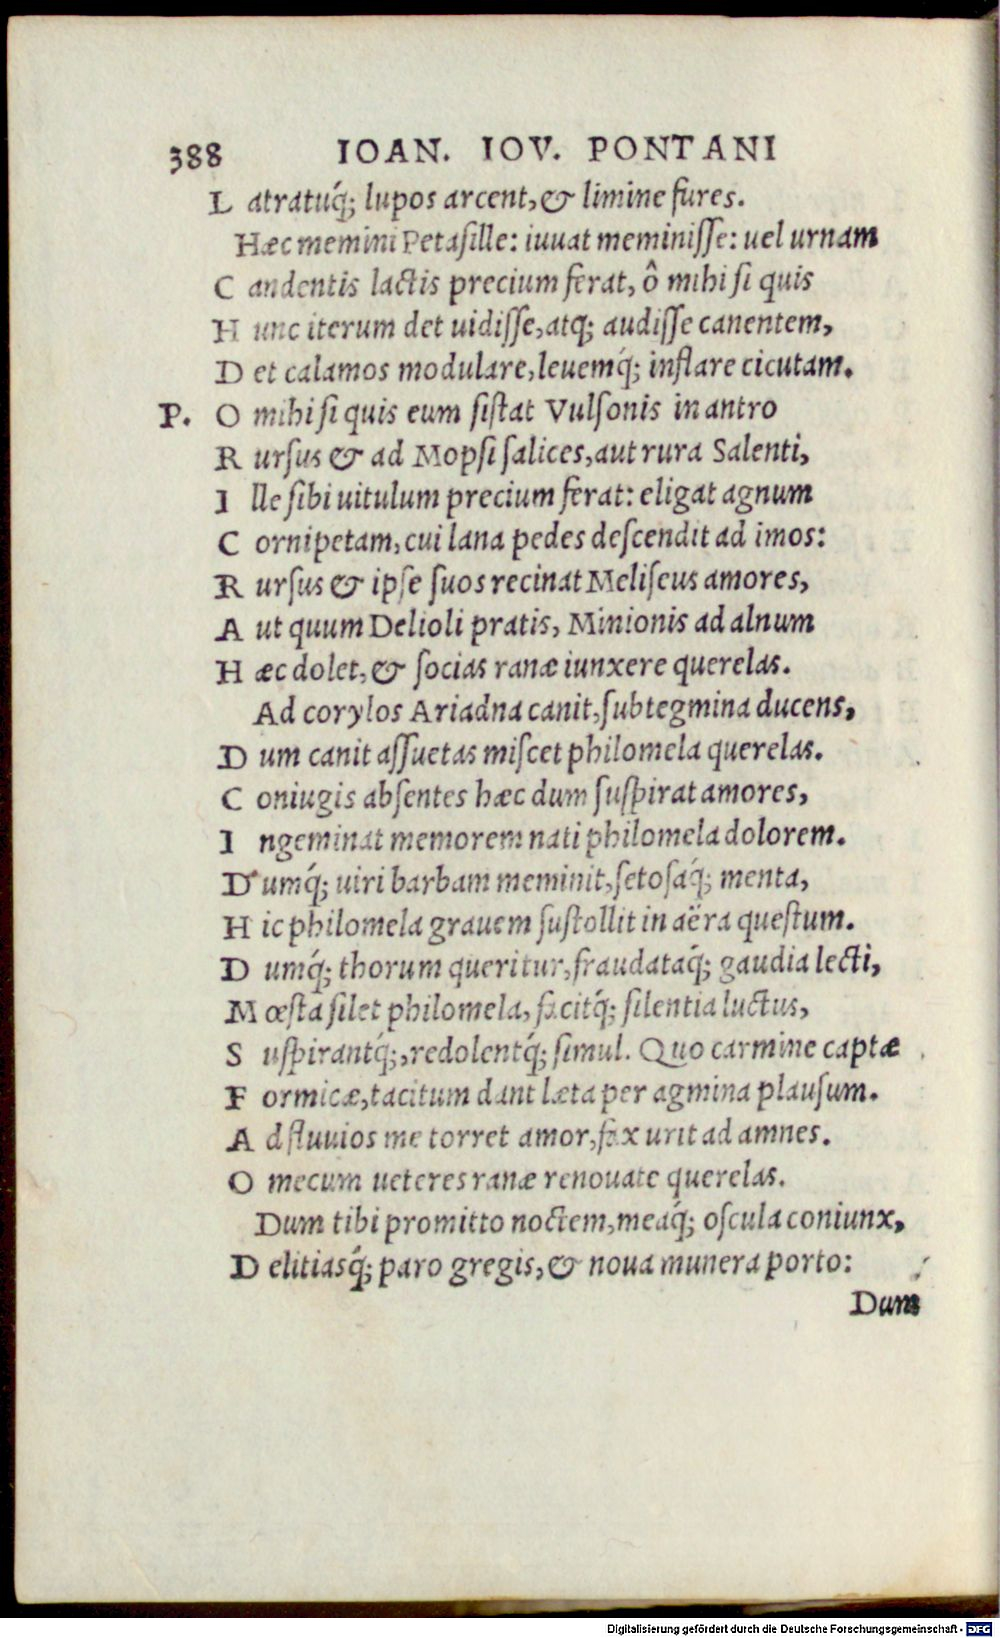 388 IOAN. IOV. PONTANI
L atratuq́; lupos arcent, & limine fures.
Hæc memini Petasille: iuuat meminisse: uel urnam
C andentis lactis precium ferat, ô mihi si quis
H unc iterum det uidisse, atq; audisse canentem,
D et calamos modulare, leuemq́; inflare cicutam.
P. O mihi si quis eum sistat Vulsonis in antro
R ursus & ad Mopsi salices, aut rura Salenti,
I lle sibi uitulum precium ferat: eligat agnum
C ornipetam, cui lana pedes descendit ad imos:
R ursus & ipse suos recinat Meliseus amores,
A ut quum Delioli pratis, Minionis ad alnum
H æc dolet, & socias ranæ iunxere querelas.
Ad corylos Ariadna canit, subtegmina ducens,
D um canit assuetas miscet philomela querelas.
C oniugis absentes hæc dum suspirat amores,
I ngeminat memorem nati philomela dolorem.
D umq́; uiri barbam meminit, setosaq́; menta,
H ic philomela grauem sustollit in aëra questum.
D umq́; thorum queritur, fraudataq́; gaudia lecti,
M œsta silet philomela, facitq́; silentia luctus,
S uspirantq́;, redolentq́; simul. Quo carmine captæ
F ormicæ, tacitum dant læta per agmina plausum.
A d fluuios me torret amor, fax urit ad amnes.
O mecum ueteres ranæ renouate querelas.
Dum tibi promitto noctem, meaq́; oscula coniunx,
D elitiasq́; paro gregis, & noua munera porto:
Dum
Digitalisierung gefördert durch die Deutsche Forschungsgemeinschaft - DFG